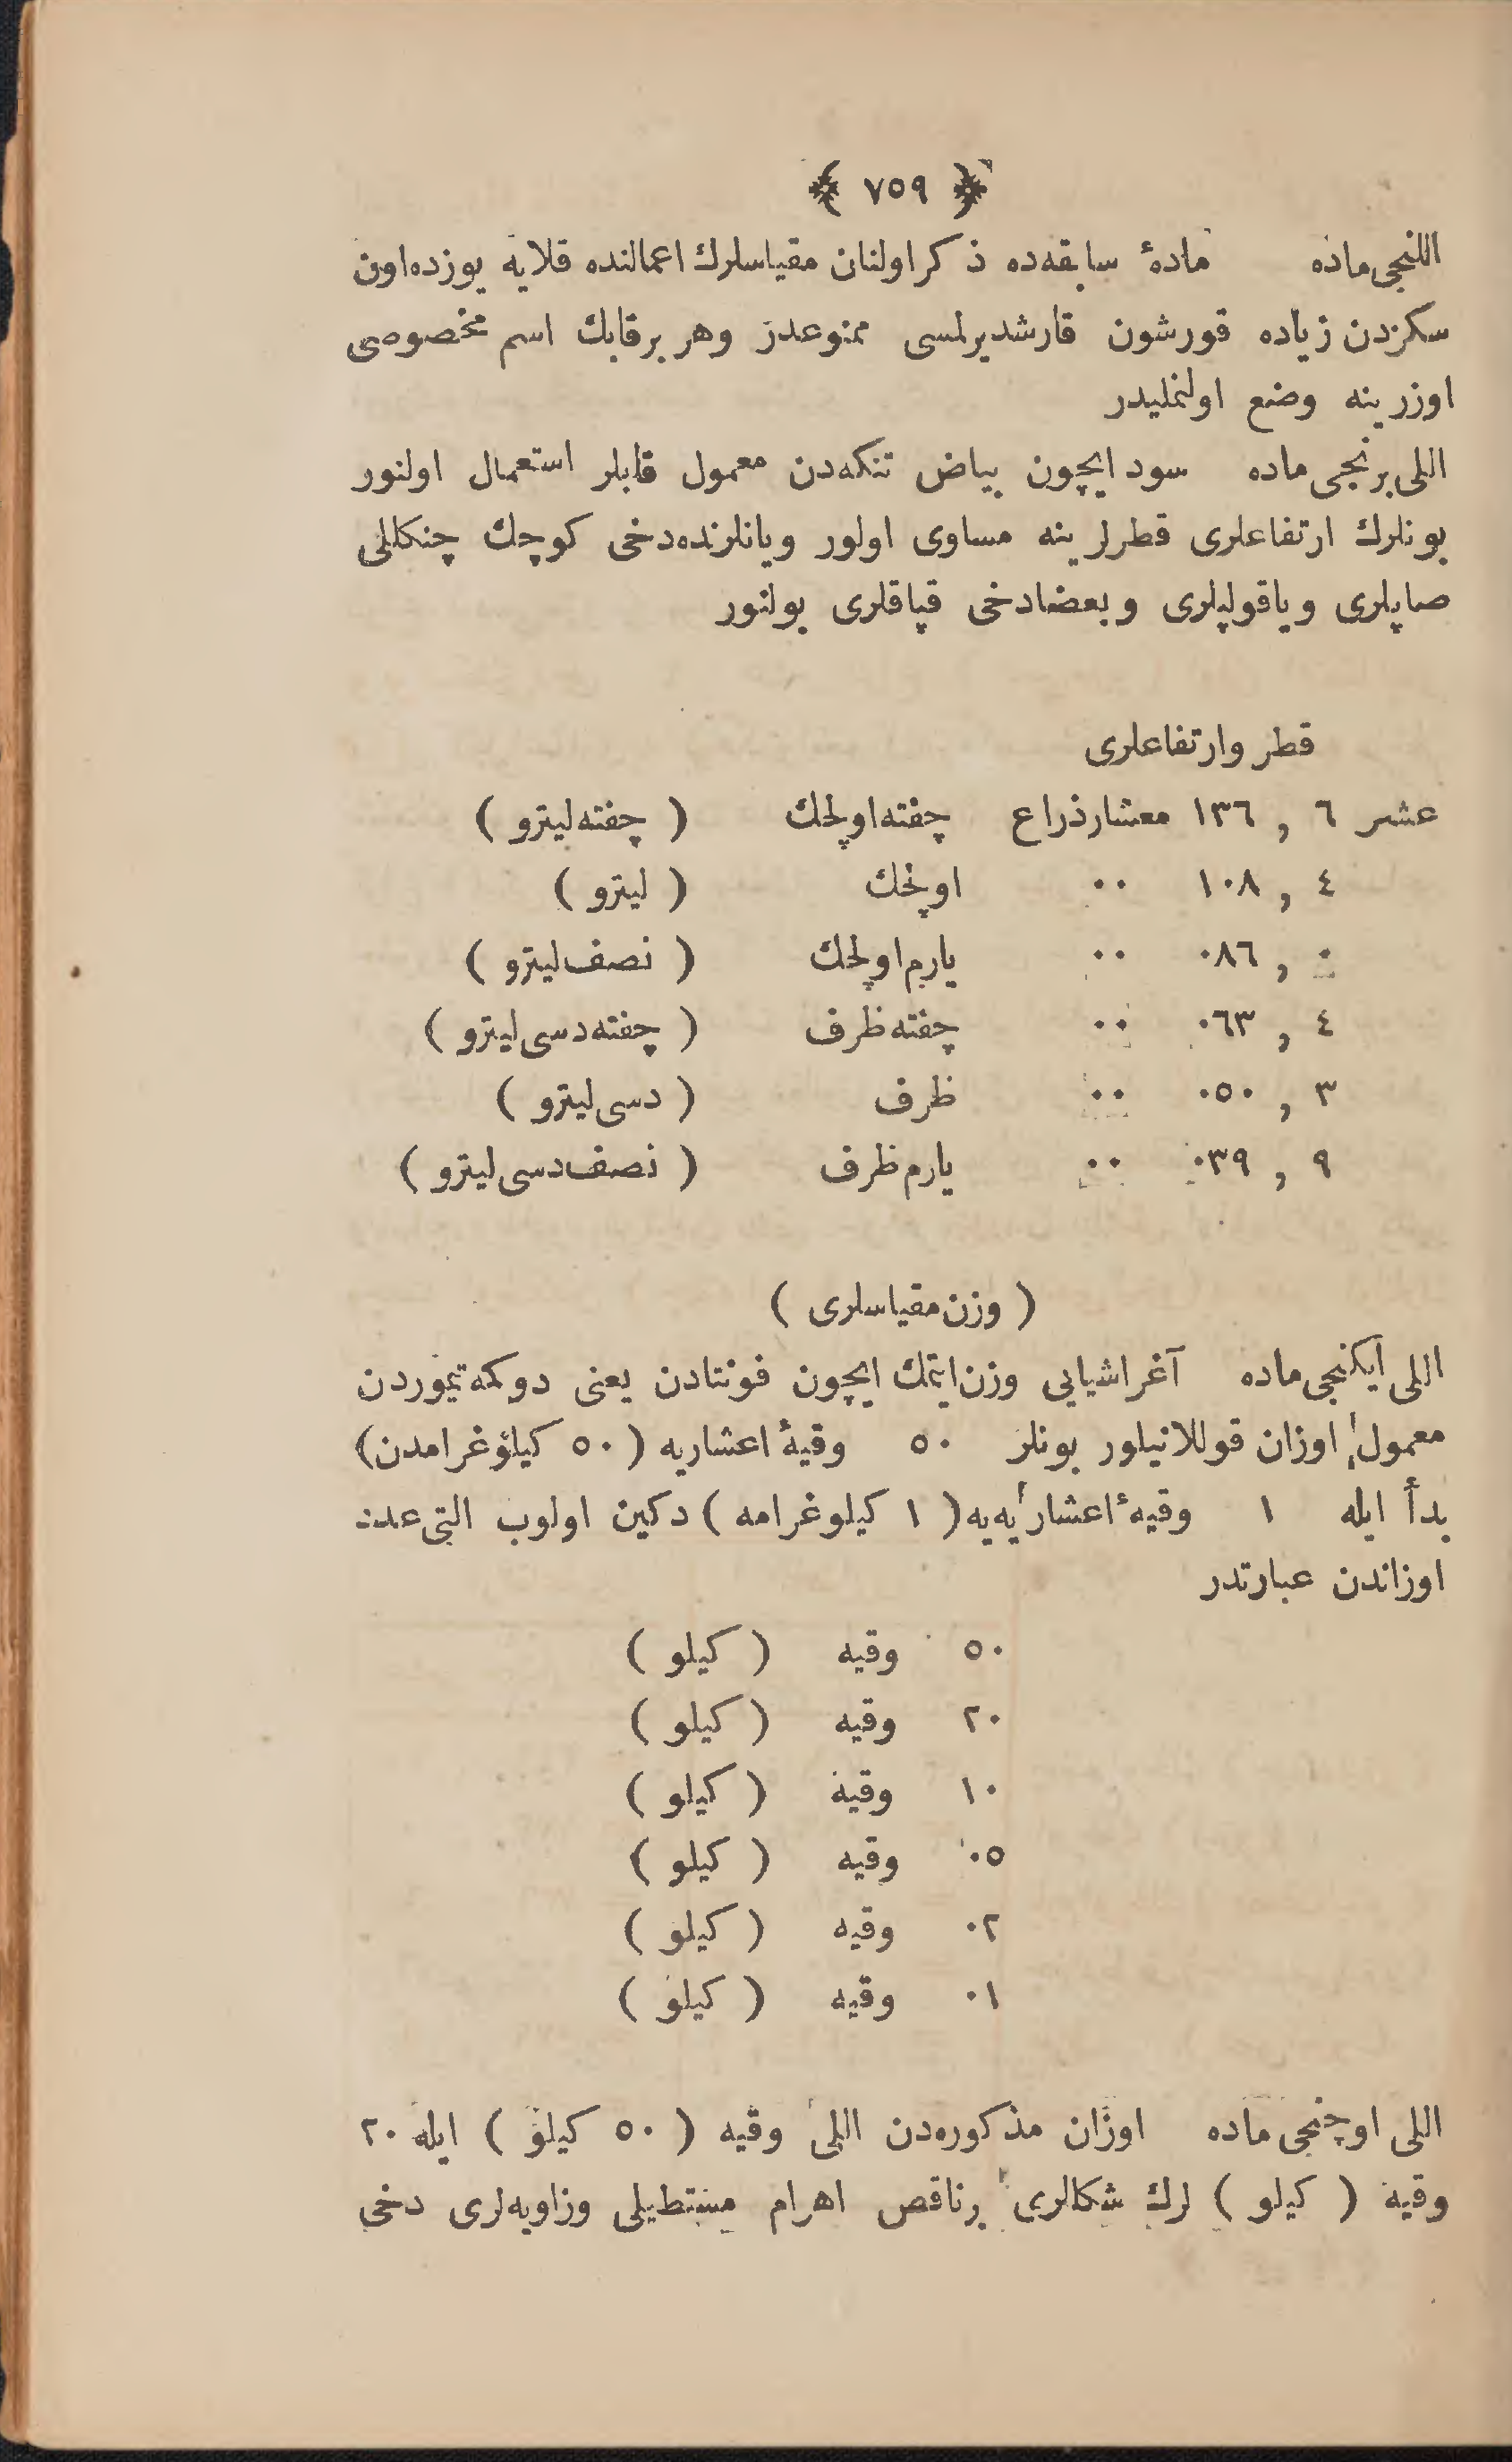 ﴿ ٧٥٩ ﴾
اللنجی ماده مادهٔ سابقه‌ده ذكر اولنان مقیاسلرك اعمالنده قلایه یوزده اون
سكزدن زیاده قورشون قارشدیرلمسی ممنوعدر وهر برقابك اسم مخصوصی
اوزرینه وضع اولنملیدر
اللی برنجی ماده سود ایچون بیاض تنكه‌دن معمول قابلر استعمال اولنور
بونلرك ارتفاعلری قطرلرینه مساوی اولور ویانلرنده‌دخی كوچك چنكللی
صاپلری ویاقولپلری وبعضادخی قپاقلری بولنور
قطر وارتفاعلری
عشر ٦ , ١٣٦ معشارذراع چفته‌اولچك ( چفته‌لیترو )
٤ , ١٠٨ ٠٠ اولچك ( لیترو )
٠ , ٠٨٦ ٠٠ یارم‌اولچك ( نصف‌لیترو )
٤ , ٠٦٣ ٠٠ چفته‌ظرف ( چفته‌دسی‌لیترو )
٣ , ٠٥٠ ٠٠ ظرف ( دسی‌لیترو )
٩ , ٠٣٩ ٠٠ یارم‌ظرف ( نصف‌دسی‌لیترو )
( وزن‌مقیاسلری )
اللی ایكنجی ماده آغراشیایی وزن‌ایتمك ایچون فونتادن یعنی دوكمه‌تیموردن
معمول اوزان قوللانیلور بونلر ٥٠ وقیهٔ اعشاریه ( ٥٠ كیلوغرامدن)
بدأ ایله ١ وقیهٔ اعشاریه‌یه ( ١ كیلوغرامه ) دكین اولوب التی عدد
اوزاندن عبارتدر
٥٠ وقیه ( كیلو )
٢٠ وقیه ( كیلو )
١٠ وقیه ( كیلو )
٠٥ وقیه ( كیلو )
٠٢ وقیه ( كیلو )
٠١ وقیه ( كیلو )
اللی اوچنجی ماده اوزان مذكوره‌دن اللی وقیه ( ٥٠ كیلو ) ایله ٢٠
وقیه ( كیلو ) لرك شكللری برناقص اهرام مستطیلی وزاویه‌لری دخی